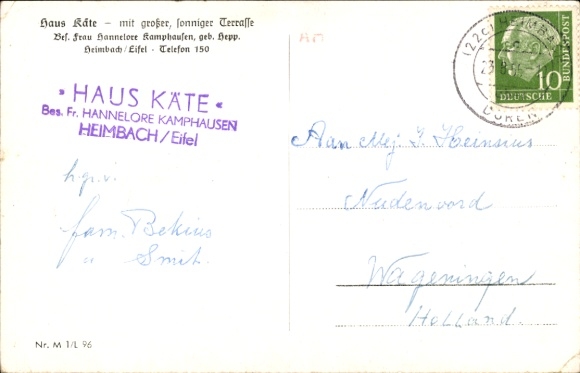 Haus Käte - mit großer, sonniger Terrasse
Bes. Frau Hannelore Kamphausen, geb. Hepp.
Heimbach/Eifel - Telefon 150
• HAUS KÄTE •
Bes. Fr. HANNELORE KAMPHAUSEN
HEIMBACH/Eifel
h.g.v.
fam. Bekius
" Smit.
Nr. M 1/L 96
(22c) HEIMBA
DÜREN
10
DEUTSCHE
BUNDESPOST
Aan Mej. J. Heinsius
Nudenoord
Wageningen
Holland.